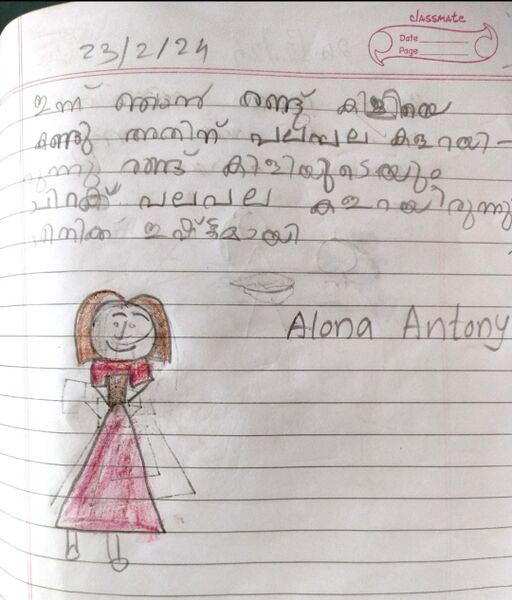 classmate
Date
Page
23/2/24
ഇന്ന് ഞാൻ രണ്ട് കിളിയെ
കണ്ടു അതിന് പലപല കളറായി-
രുന്നു രണ്ട് കിളിയുടെയും
ചിറക് പലപല കളറായിരുന്നു
എനിക്ക് ഇഷ്ട്ടമായി
Alona Antony